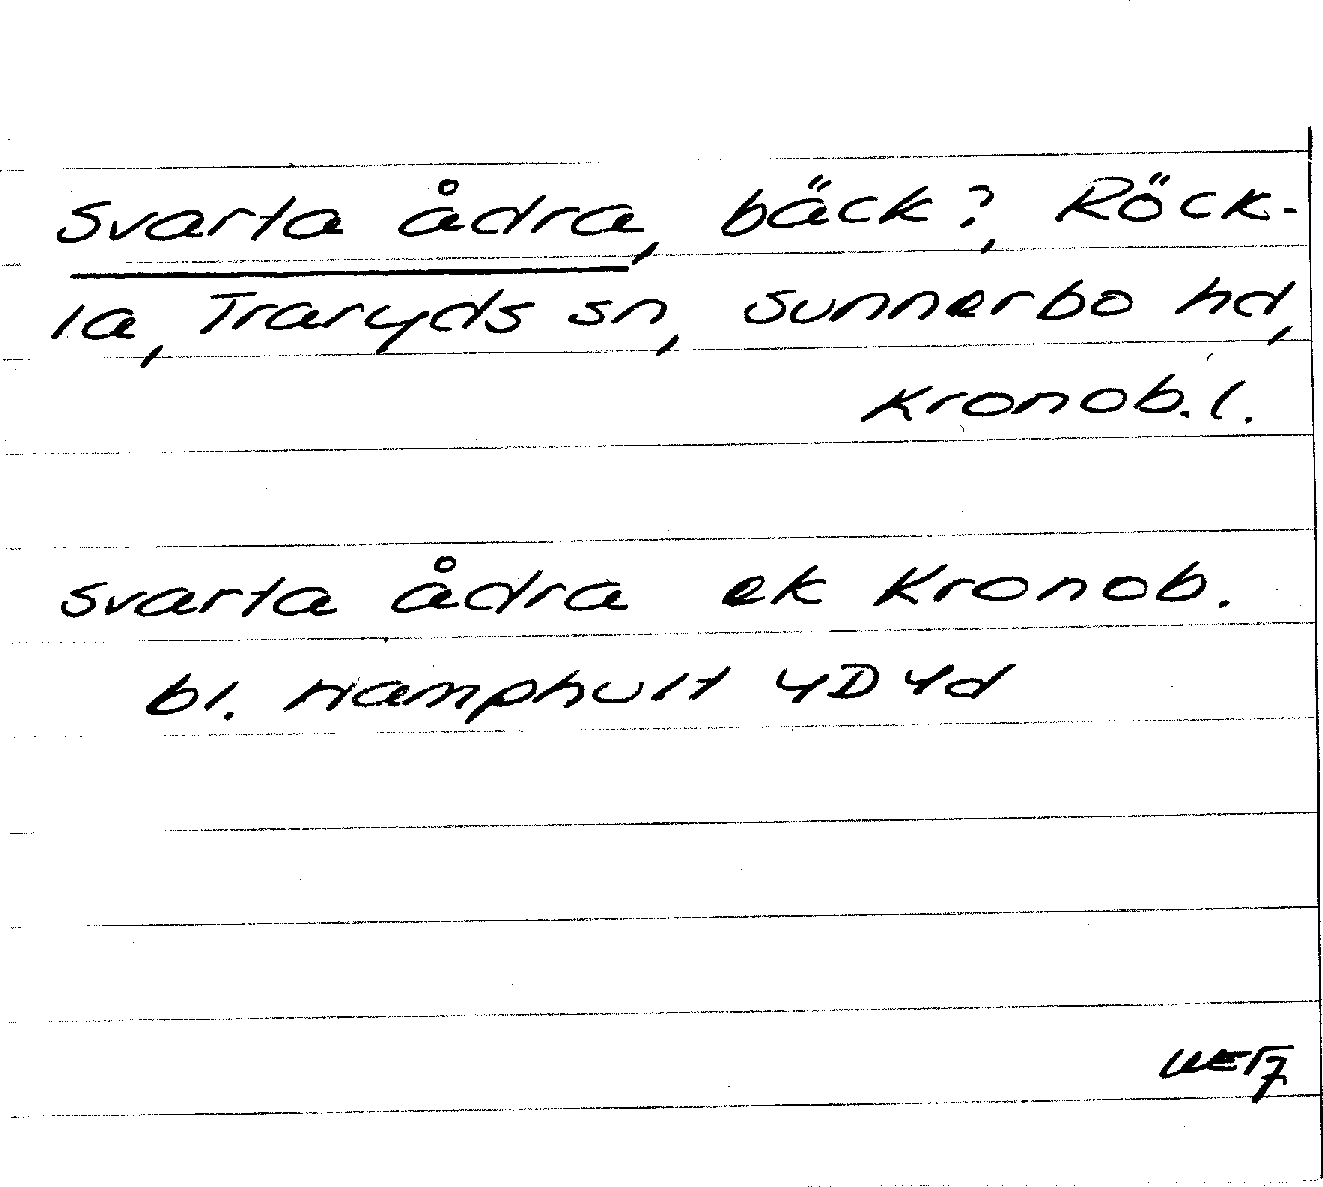 Svarta ådra, bäck?, Röck-
la, Traryds sn, Sunnerbo hd,
Kronob. l.
Svarta ådra ek Kronob.
bl. Hamphult 4D 4d